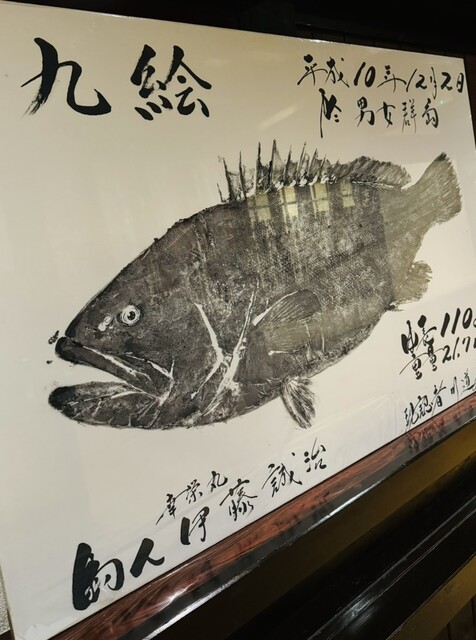 九絵
平成10年12月2日
於 男女群島
110.
21.7
現認者
幸栄丸
釣人 伊藤誠治